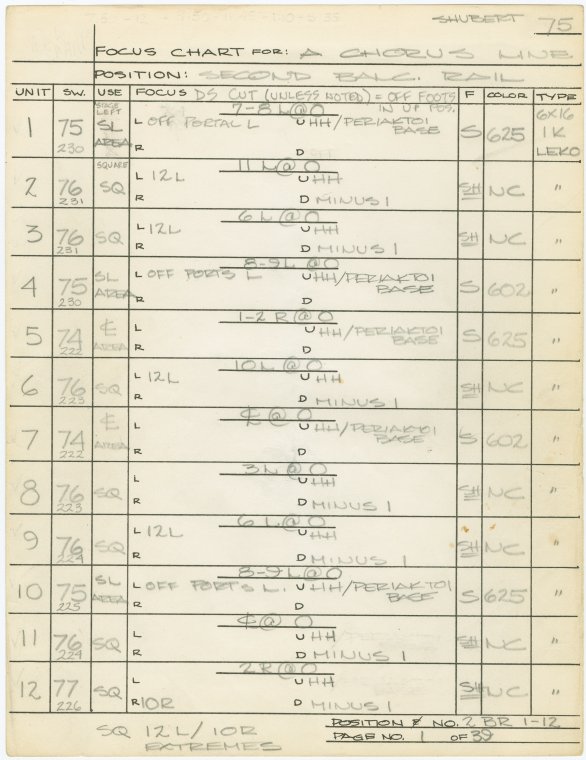 SHUBERT 75
FOCUS CHART FOR: A CHORUS LINE
POSITION: SECOND BALC. RAIL
UNIT SW. USE FOCUS DS CUT (UNLESS NOTED) = OFF FOOTS IN UP POS. F COLOR TYPE
1 75 230 STAGE LEFT SL AREA 7-8 L@0 L OFF PORTAL L U HH/PERIAKTOI BASE R D S 625 6X16 1K LEKO
2 76 231 SQUARE SQ 11 L@0 L 12L U HH R D MINUS 1 SH NC "
3 76 231 SQ 6 L@0 L 12L U HH R D MINUS 1 SH NC "
4 75 230 SL AREA 8-9L @0 L OFF PORTS L U HH/PERIAKTOI BASE R D S 602 "
5 74 222 ₵ AREA 1-2 R@0 L U HH/PERIAKTOI BASE R D S 625 "
6 76 223 SQ 10L @0 L 12L U HH R D MINUS 1 SH NC "
7 74 222 ₵ AREA ₵@0 L U HH/PERIAKTOI BASE R D S 602 "
8 76 223 SQ 3L@0 L U HH R D MINUS 1 SH NC "
9 76 224 SQ 6 L@0 L 12L U HH R D MINUS 1 SH NC "
10 75 225 SL AREA 8-9L@0 L OFF PORTS L. U HH/PERIAKTOI BASE R D S 625 "
11 76 224 SQ ₵@0 L U HH R D MINUS 1 SH NC "
12 77 226 SQ 2R@0 L U HH R 10R D MINUS 1 SH NC "
SQ 12L/10R
EXTREMES
POSITION & NO. 2 BR 1-12
PAGE NO. 1 OF 39